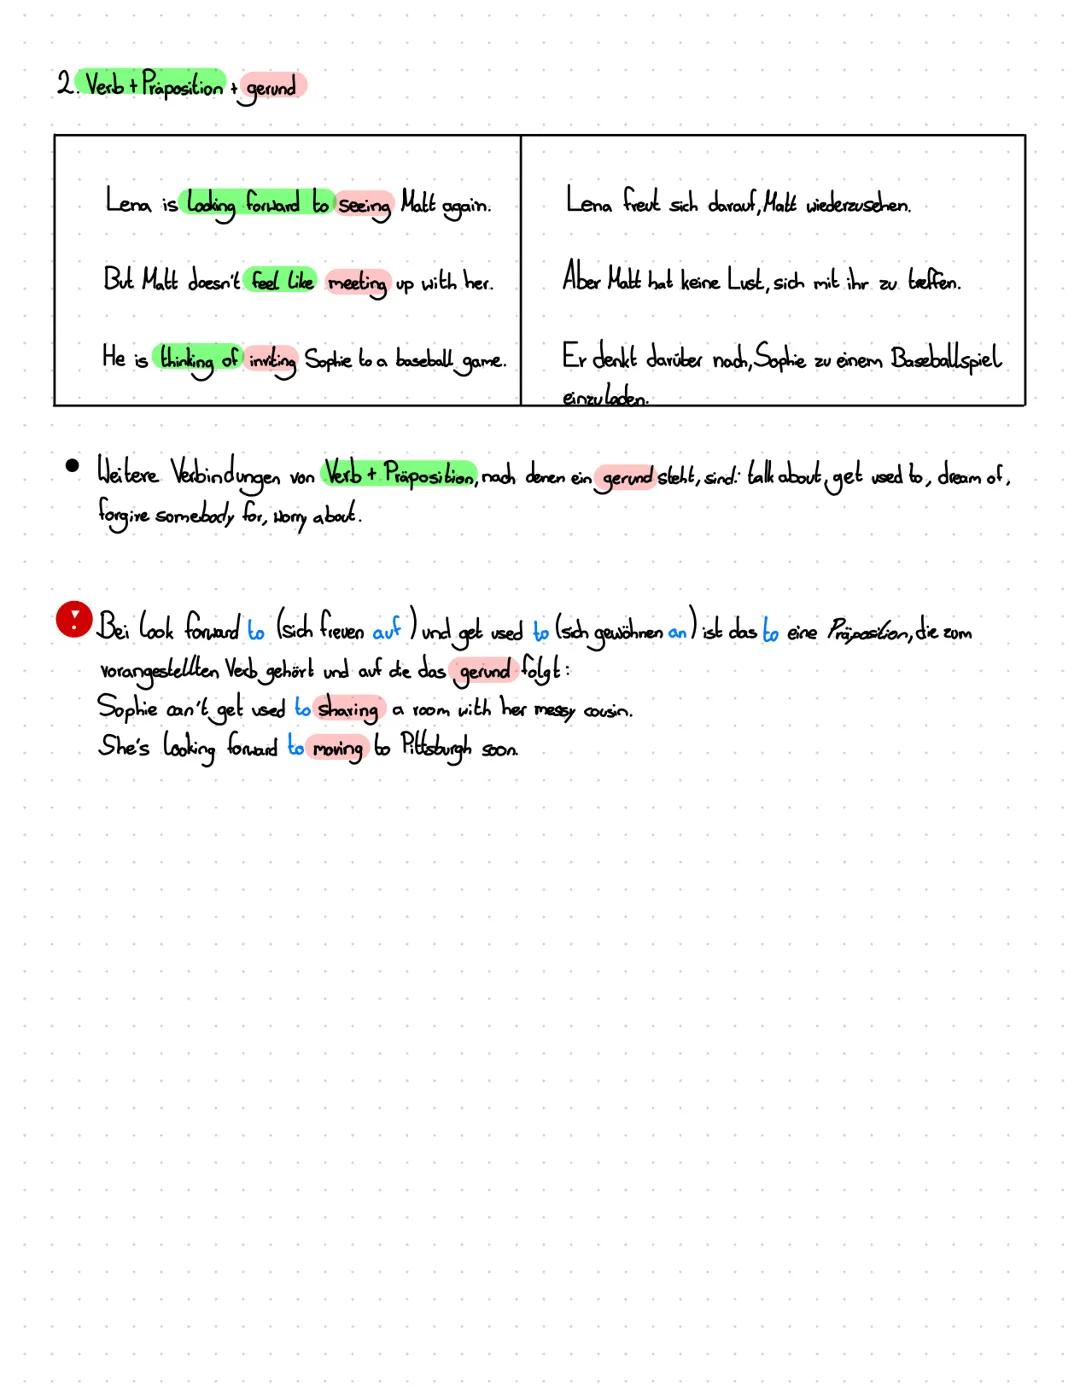 2. Verb + Präposition + gerund
Lena is looking forward to seeing Matt again.
Lena freut sich darauf, Matt wiederzusehen.
But Matt doesn't feel like meeting up with her.
Aber Matt hat keine Lust, sich mit ihr zu treffen.
He is thinking of inviting Sophie to a baseball game.
Er denkt darüber nach, Sophie zu einem Baseballspiel
einzuladen.
• Weitere Verbindungen von Verb + Präposition, nach denen ein gerund steht, sind: talk about, get used to, dream of,
forgive somebody for, worry about.
! Bei look forward to (sich freuen auf) und get used to (sich gewöhnen an) ist das to eine Präposition, die zum
vorangestellten Verb gehört und auf die das gerund folgt:
Sophie can't get used to sharing a room with her messy cousin.
She's looking forward to moving to Pittsburgh soon.